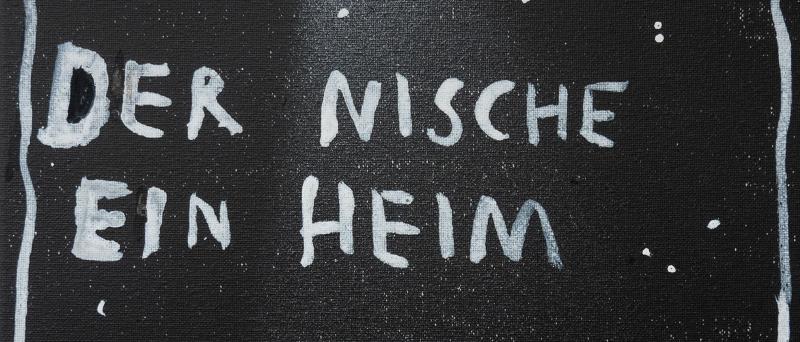 DER NISCHE
EIN HEIM